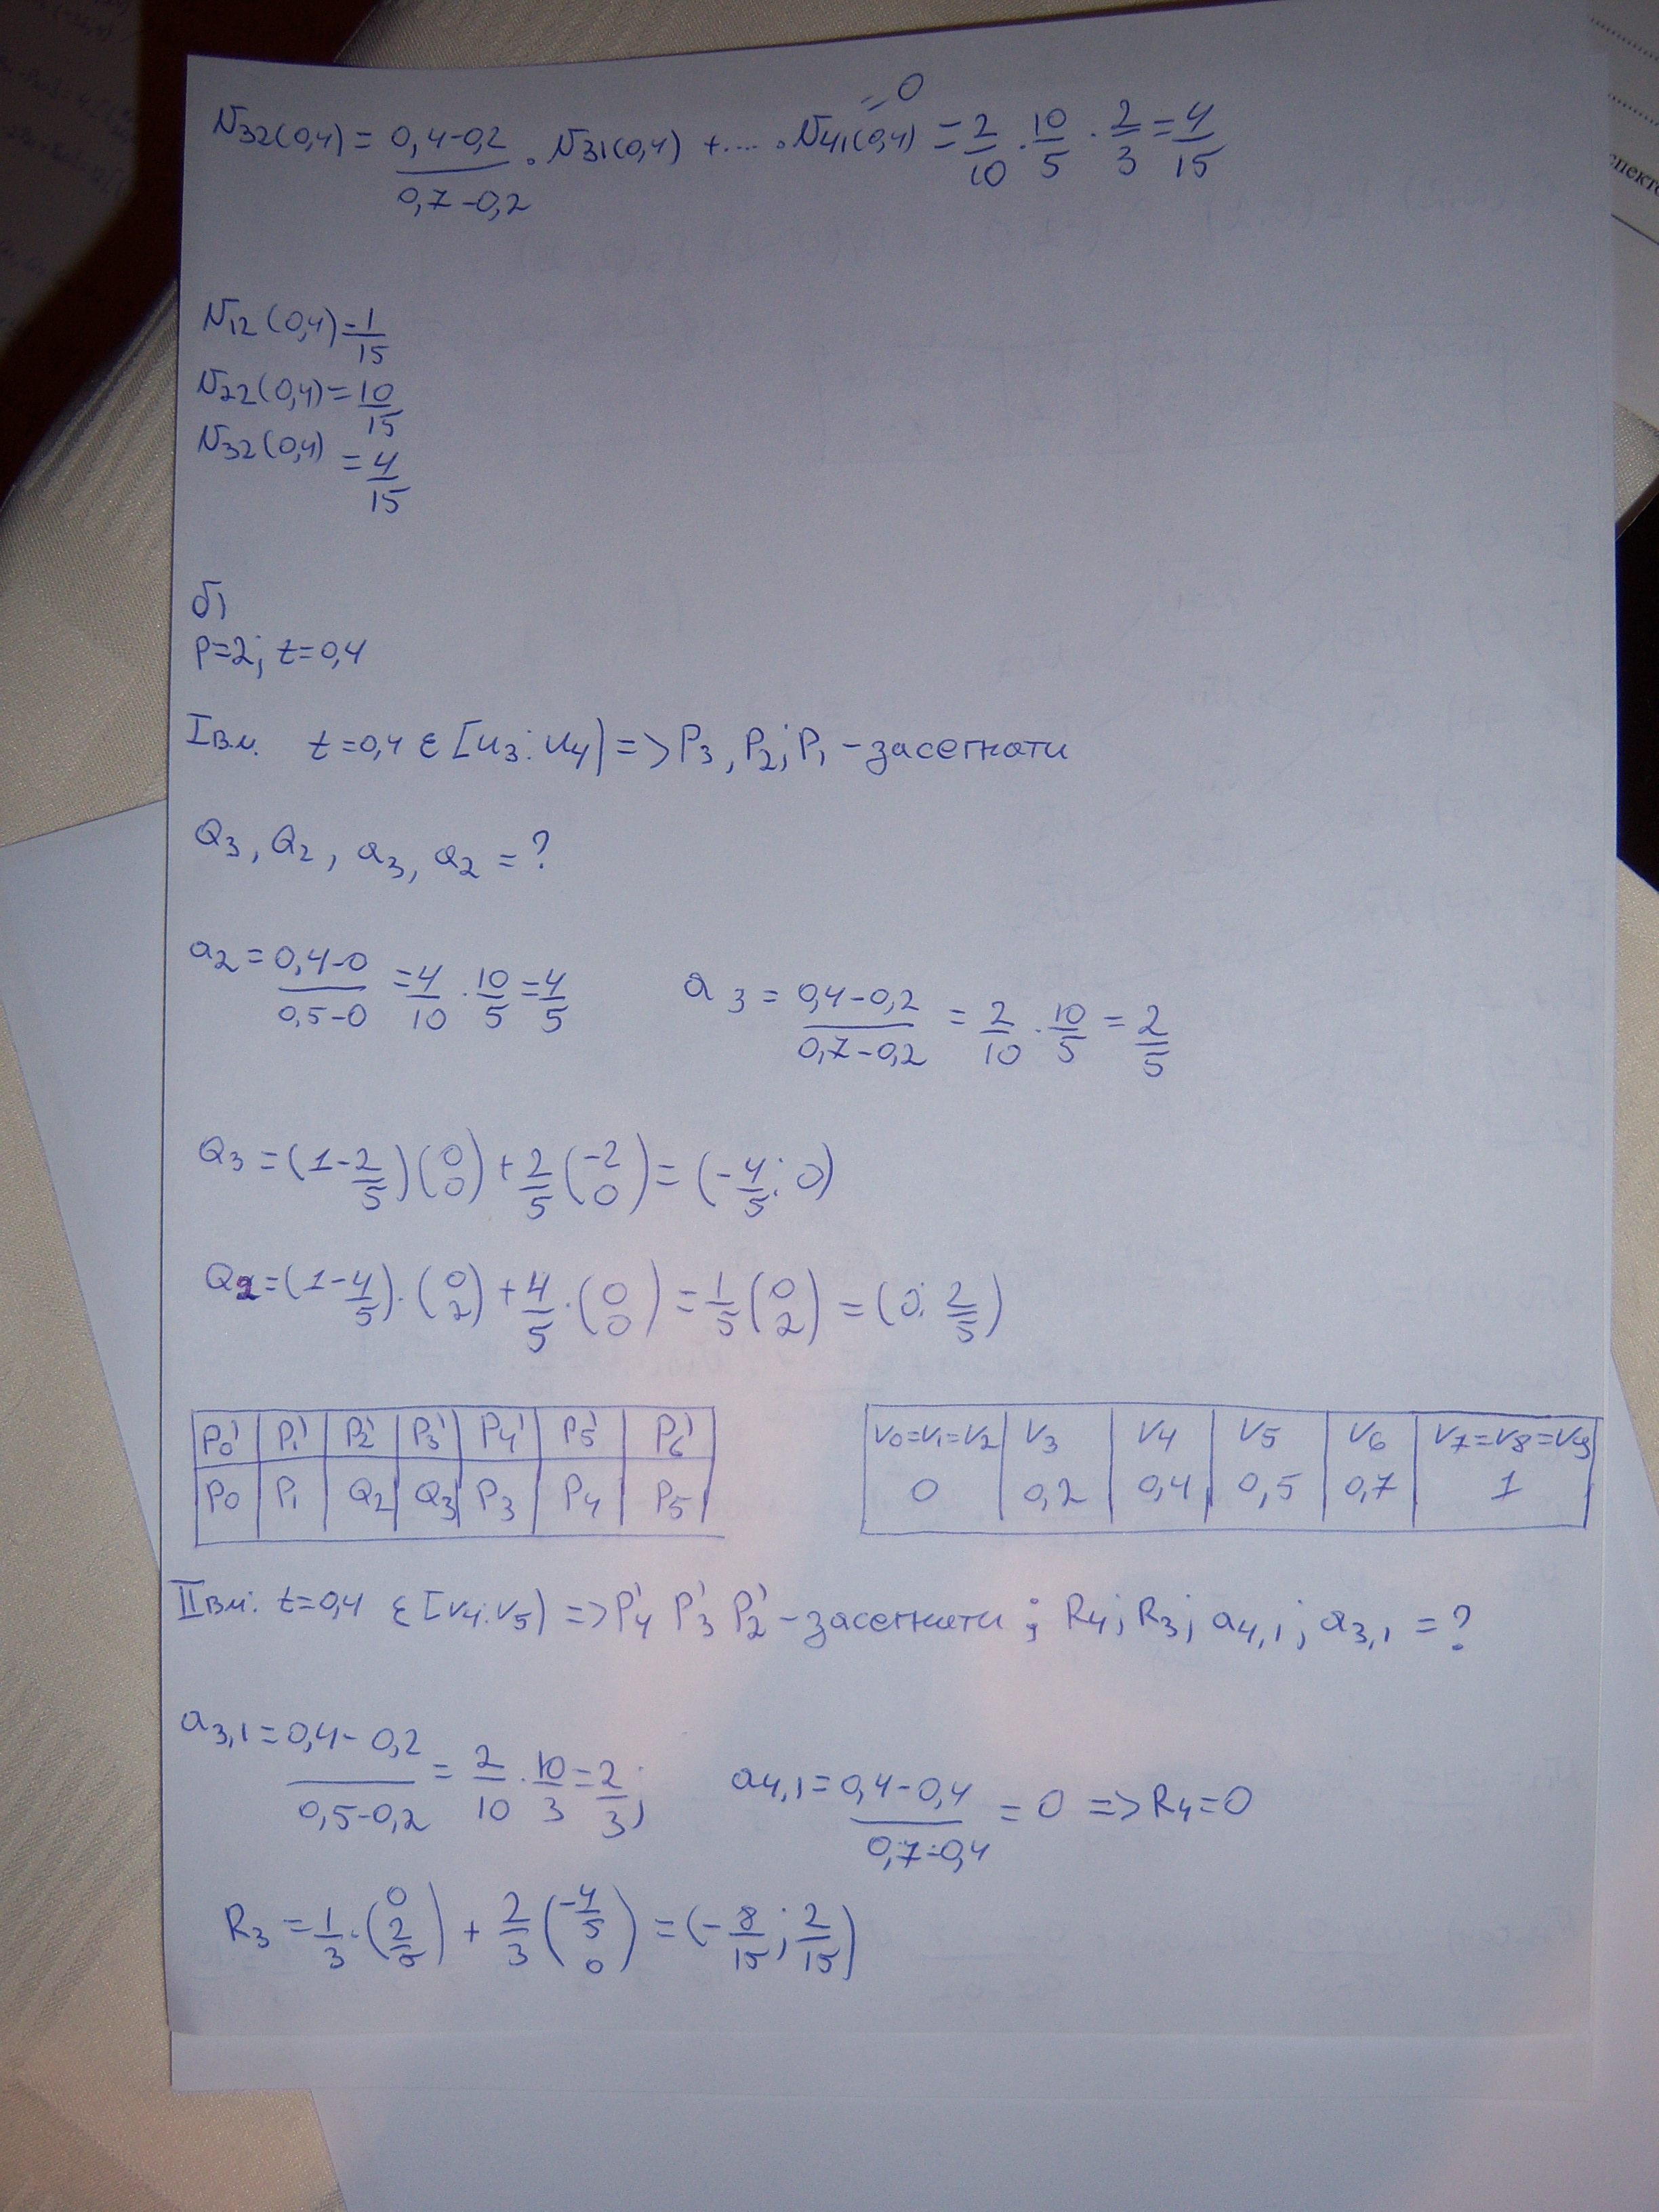 N32(0,4) = (0,4-0,2)/(0,7-0,2) · N31(0,4) + .... · N41(0,4) = 2/10 · 10/5 · 2/3 = 4/15
= 0
N12(0,4) = 1/15
N22(0,4) = 10/15
N32(0,4) = 4/15
б)
p=2; t=0,4
I вм. t=0,4 ε [u3; u4) => P3, P2; P1 - засегнати
Q3, Q2, a3, a2 = ?
a2 = (0,4-0)/(0,5-0) = 4/10 · 10/5 = 4/5 a3 = (0,4-0,2)/(0,7-0,2) = 2/10 · 10/5 = 2/5
Q3 = (1-2/5)(0 0) + 2/5 (-2 0) = (-4/5; 0)
Q2 = (1-4/5) · (0 2) + 4/5 · (0 0) = 1/5 (0 2) = (0; 2/5)
P0' P1' P2' P3' P4' P5' P6'
P0 P1 Q2 Q3 P3 P4 P5
V0=V1=V2 V3 V4 V5 V6 V7=V8=V9
0 0,2 0,4 0,5 0,7 1
II вм: t=0,4 ε [V4; V5) => P4' P3' P2' - засегнати ; R4; R3; a4,1; a3,1 = ?
a3,1 = (0,4-0,2)/(0,5-0,2) = 2/10 · 10/3 = 2/3; a4,1 = (0,4-0,4)/(0,7-0,4) = 0 => R4=0
R3 = 1/3 · (0 2/5) + 2/3 (-4/5 0) = (-8/15; 2/15)